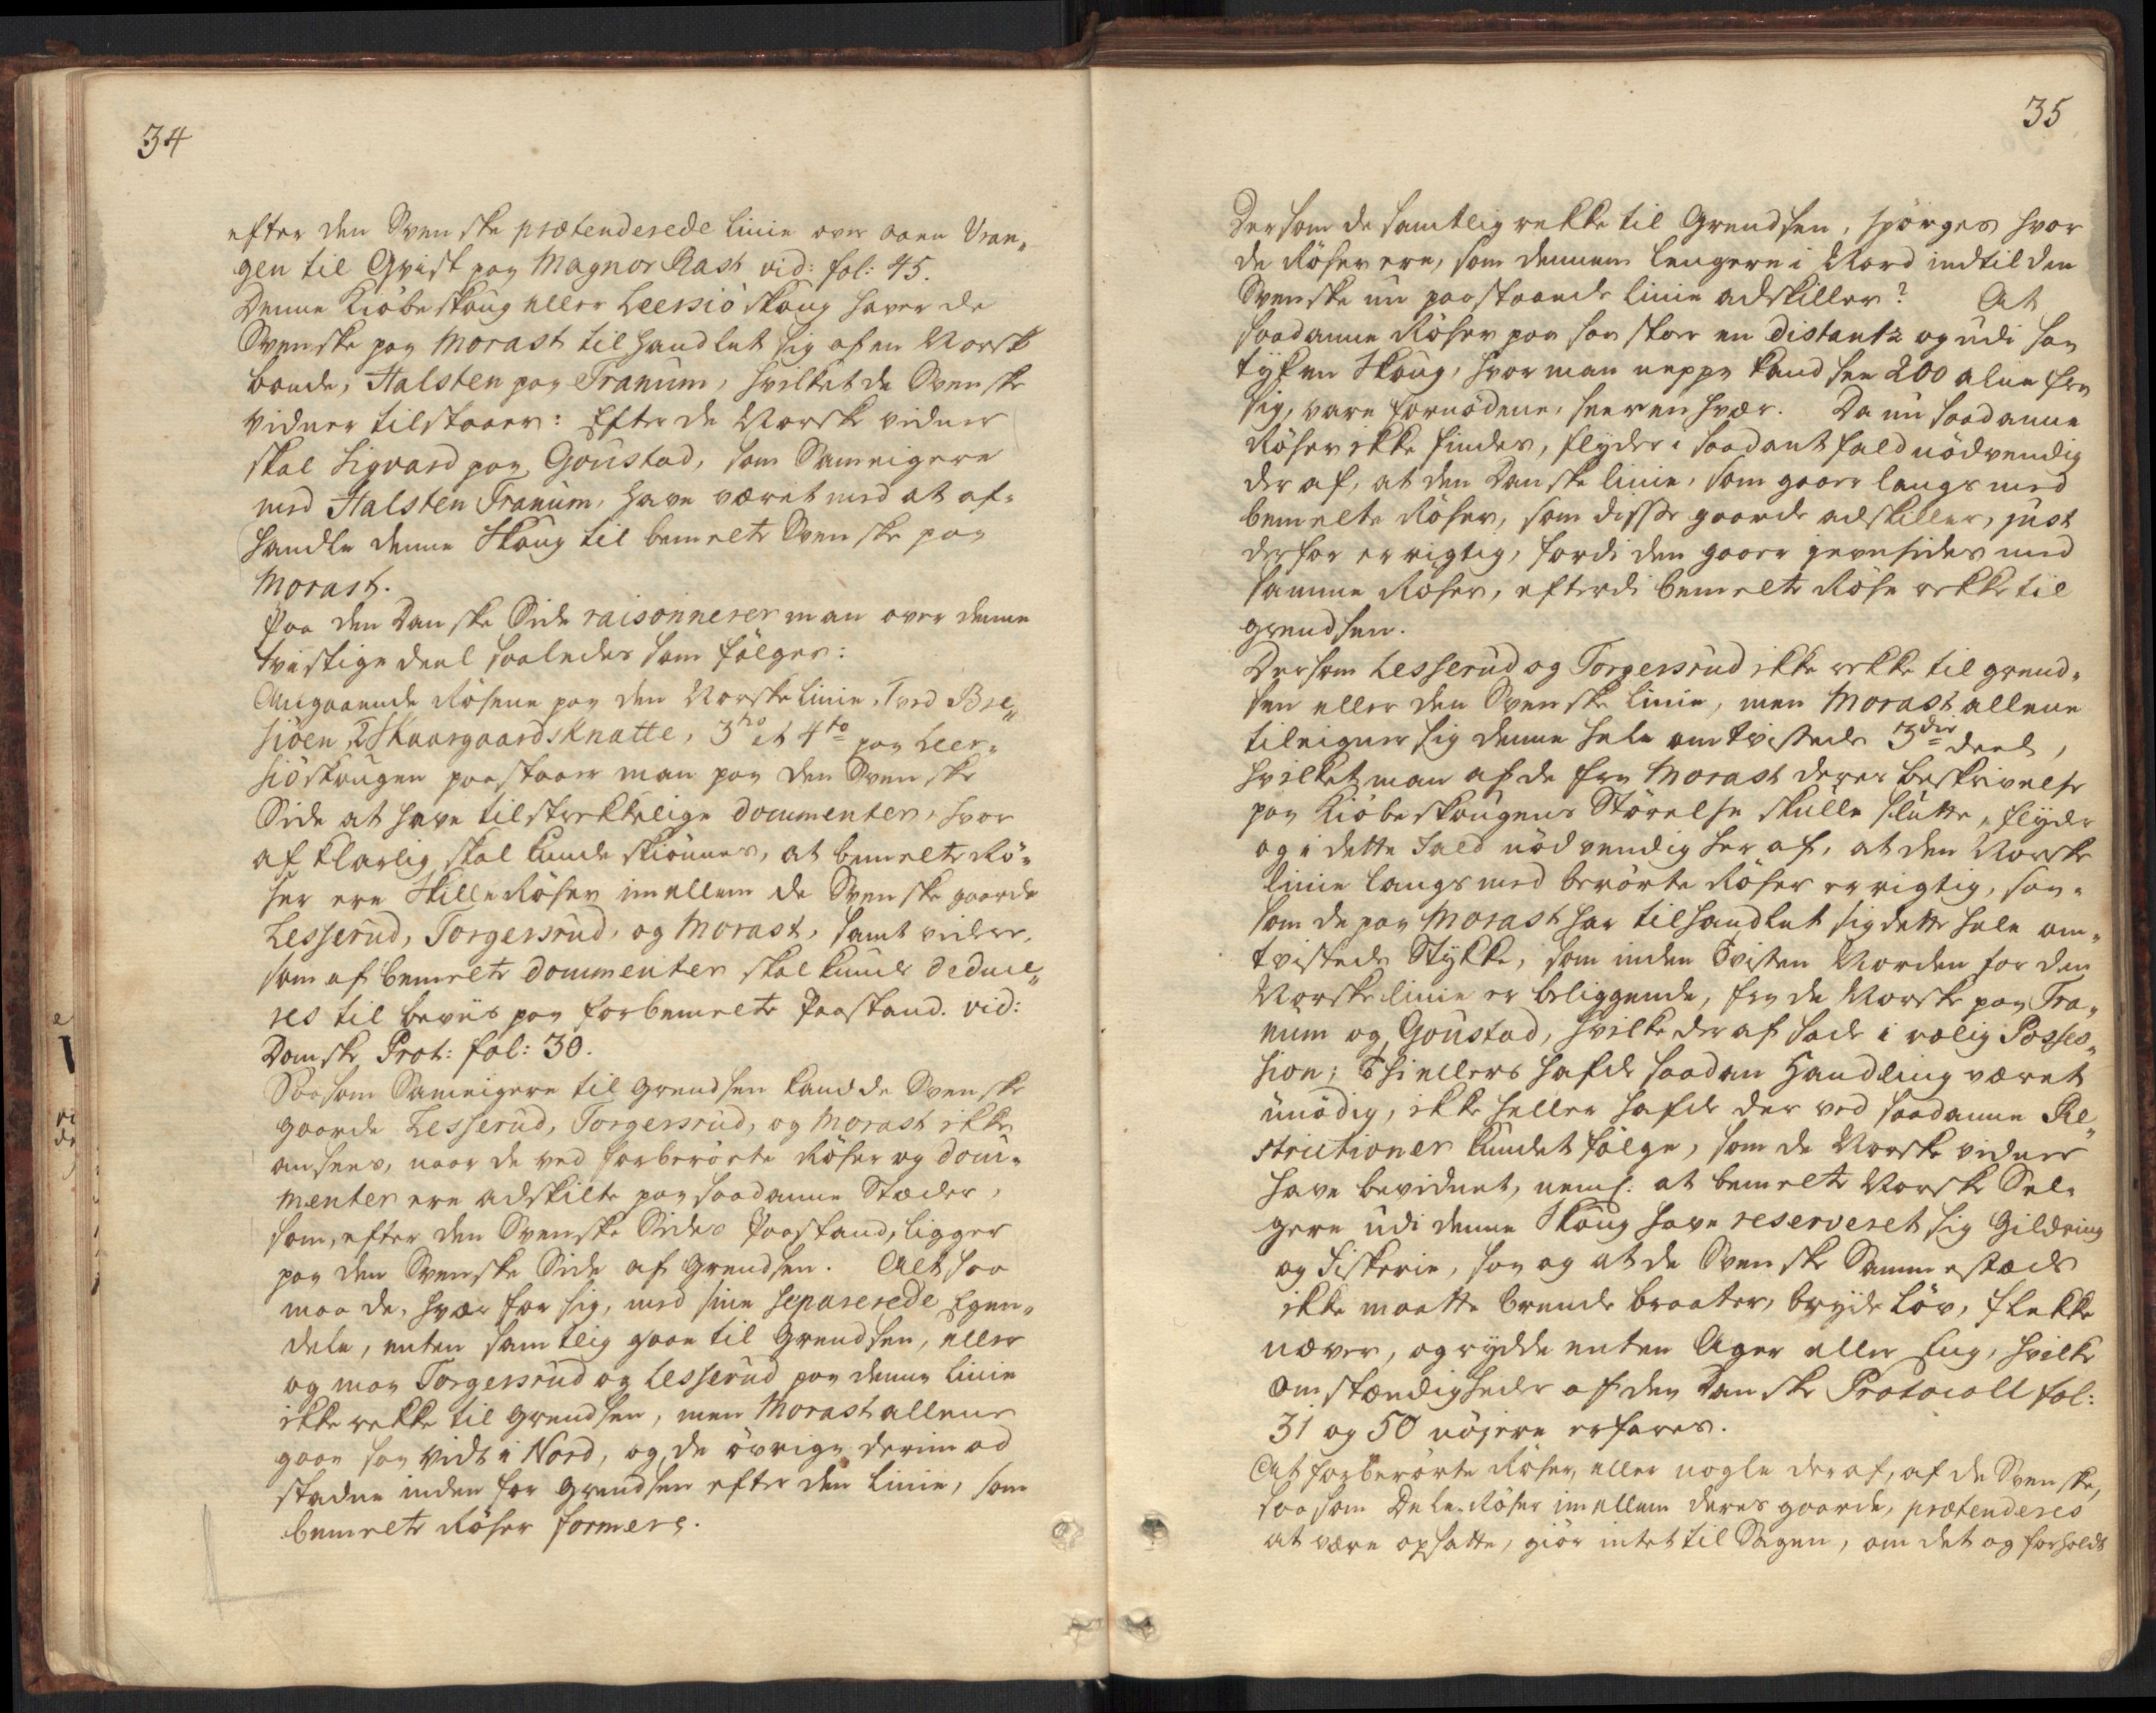 34
efter den Svenske prætenderede linie over aaen Vran„
gen til Qvist paa Magnor Rast vid: fol: 45.
Denne Kiöbeskoug eller Leersiö skoug haver de
Svenske paa Morast tilhandlet sig af en Norsk
bonde, Halsten paa Tranum, hvilket de Svenske
vidner tilstaaer: Efter de Norske vidner
skal Sigvard paa Goustad, som Sameigere
med Halsten Tranum, have været med at af„
handle denne Skoug til bemelte Svenske paa
Morast.
Paa den Danske Side raisonnerer man over denne
tvistige deel saaledes som fölger:
Angaaende Rösene paa den Norske linie, 1 ved Bree„
siöen, 2 Skaargaards Knatte, 3tio et 4to paa Leer„
siöskougen paastaaer man paa den Svenske
Side at have tilstrekkelige documenter, hvor
af klarlig skal kunde skiönnes, at bemelte Rö„
ser ere Skille Röser imellem de Svenske gaarde
Lesserud, Torgersrud, og Morast, samt videre,
som af bemelte documenter skal kunde deduce„
res til beviis paa forbemelte Paastand. vid:
Danske Prot: fol: 30.
Saasom Sameigere til grendsen kand de Svenske
gaarde Lesserud, Torgersrud, og Morast ikke
ansees, naar de ved forberörte Röser og docu„
menter ere adskilte paa saadanne Stæder,
som, efter den Svenske Sides Paastand, ligger
paa den Svenske Side af Grendsen. Altsaa
maa de, hver for sig, med sine separerede Egen„
dele, enten samtlig gaae til Grendsen, eller
og maa Torgersrud og Lesserud paa denne linie
ikke rekke til grendsen, men Morast allene
gaae saa vidt i Nord, og de övrige derimod
stadne inden for grendsen efter den linie, som
bemelte Röser formere.
35
Dersom de samtlig rekke til Grendsen, spörges hvor
de Röser ere, som dennem lengere i Nord indtil den
Svenske nu paastaaende linie adskiller? At
saadanne Röser paa saa stor en distantz og udi saa
tyk en Skoug, hvor man neppe kand see 200 alne fra
sig, vare fornödene, seer en hver. Da nu saadanne
Röser ikke findes, flyder i saadant fald nödvendig
der af, at den Danske linie, som gaaer langs med
bemelte Röser, som disse gaarde adskiller, just
derfor er rigtig, fordi den gaaer jevnsides med
samme Röser, efterdi bemelte Röse rekke til
grendsen.
Dersom Lesserud og Torgersrud ikke rekke til grend„
sen eller den Svenske linie, men Morast allene
tileigner sig denne hele omtvistede 3die deel,
hvilket man af de fra Morast deres beskrivelse
paa Kiöbeskougens Störelse skulle slutte, flyder
og i dette Fald nödvendig her af, at den Norske
linie langs med berörte Röser er rigtig, saa„
som de paa Morast har tilhandlet sig dette hele om„
tvistede Stykke, som inden Tvisten Norden for den
Norske linie er beliggende, fra de Norske paa Tra„
num og Goustad, hvilke der af sade i rolig Posses„
sion; Thi ellers hafde saadan Handling været
unödig, ikke heller hafde der ved saadanne Re„
strictioner kundet fölge, som de Norske vidner
have bevidnet, neml: at bemelte Norske Sel„
gere udi denne Skoug have reserveret sig Gildring
og Fiskerie, saa og at de Svenske Sammestæds
ikke maatte brende braater, bryde Löv, flekke
næver, og rydde enten Ager eller Eng, hvilke
omstændigheder af den Danske Protocoll fol:
31 og 50 nöjere erfares.
At forberörte Röser, eller nogle deraf, af de Svenske,
saasom Dele-Röser imellem deres gaarde, prætenderes
at være opsatte, giör intet til Sagen, om det og forholdt